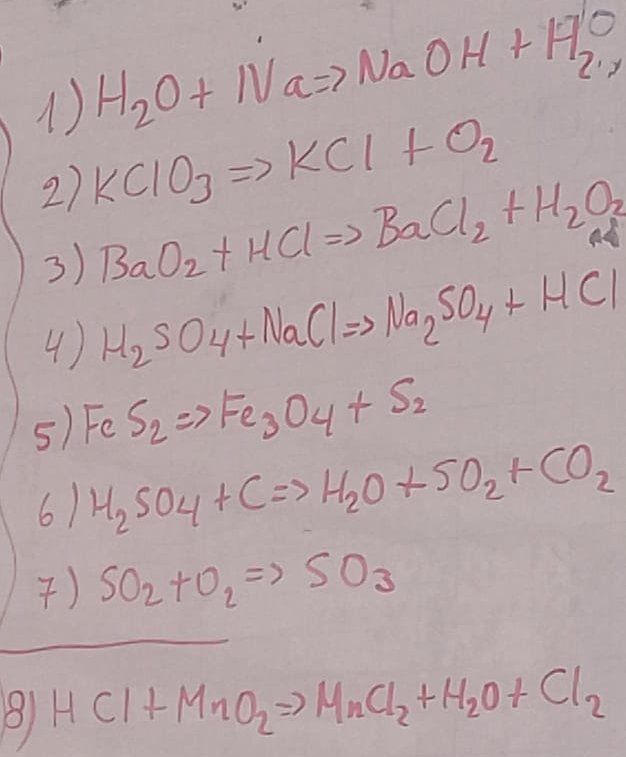 1) H₂O + Na => NaOH + H₂
2) KClO₃ => KCl + O₂
3) BaO₂ + HCl => BaCl₂ + H₂O₂
4) H₂SO₄ + NaCl => Na₂SO₄ + HCl
5) FeS₂ => Fe₃O₄ + S₂
6) H₂SO₄ + C => H₂O + SO₂ + CO₂
7) SO₂ + O₂ => SO₃
8) HCl + MnO₂ => MnCl₂ + H₂O + Cl₂